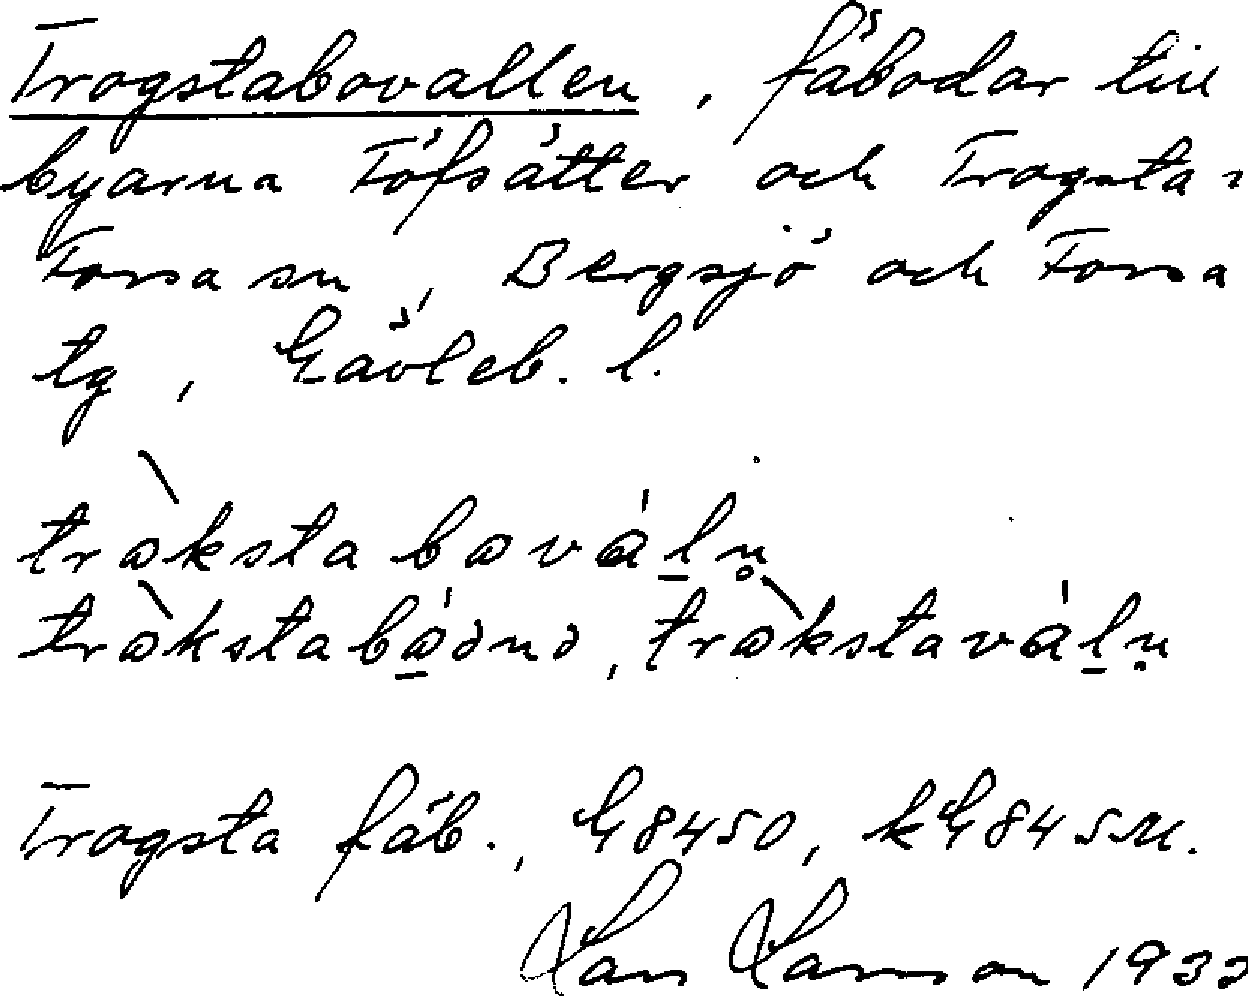 Trogstabovallen, fäbodar till
byarna Töfsätter och Trogsta,
Forsa sn, Bergsjö och Forsa
tg, Gävleb. l.
tròksta bová̱ḷṇ
tròkstabó̱ɔnɔ, tròkstaváḻṇ
Trogsta fäb., G8450, kG845M.
Lars Larsson 1932